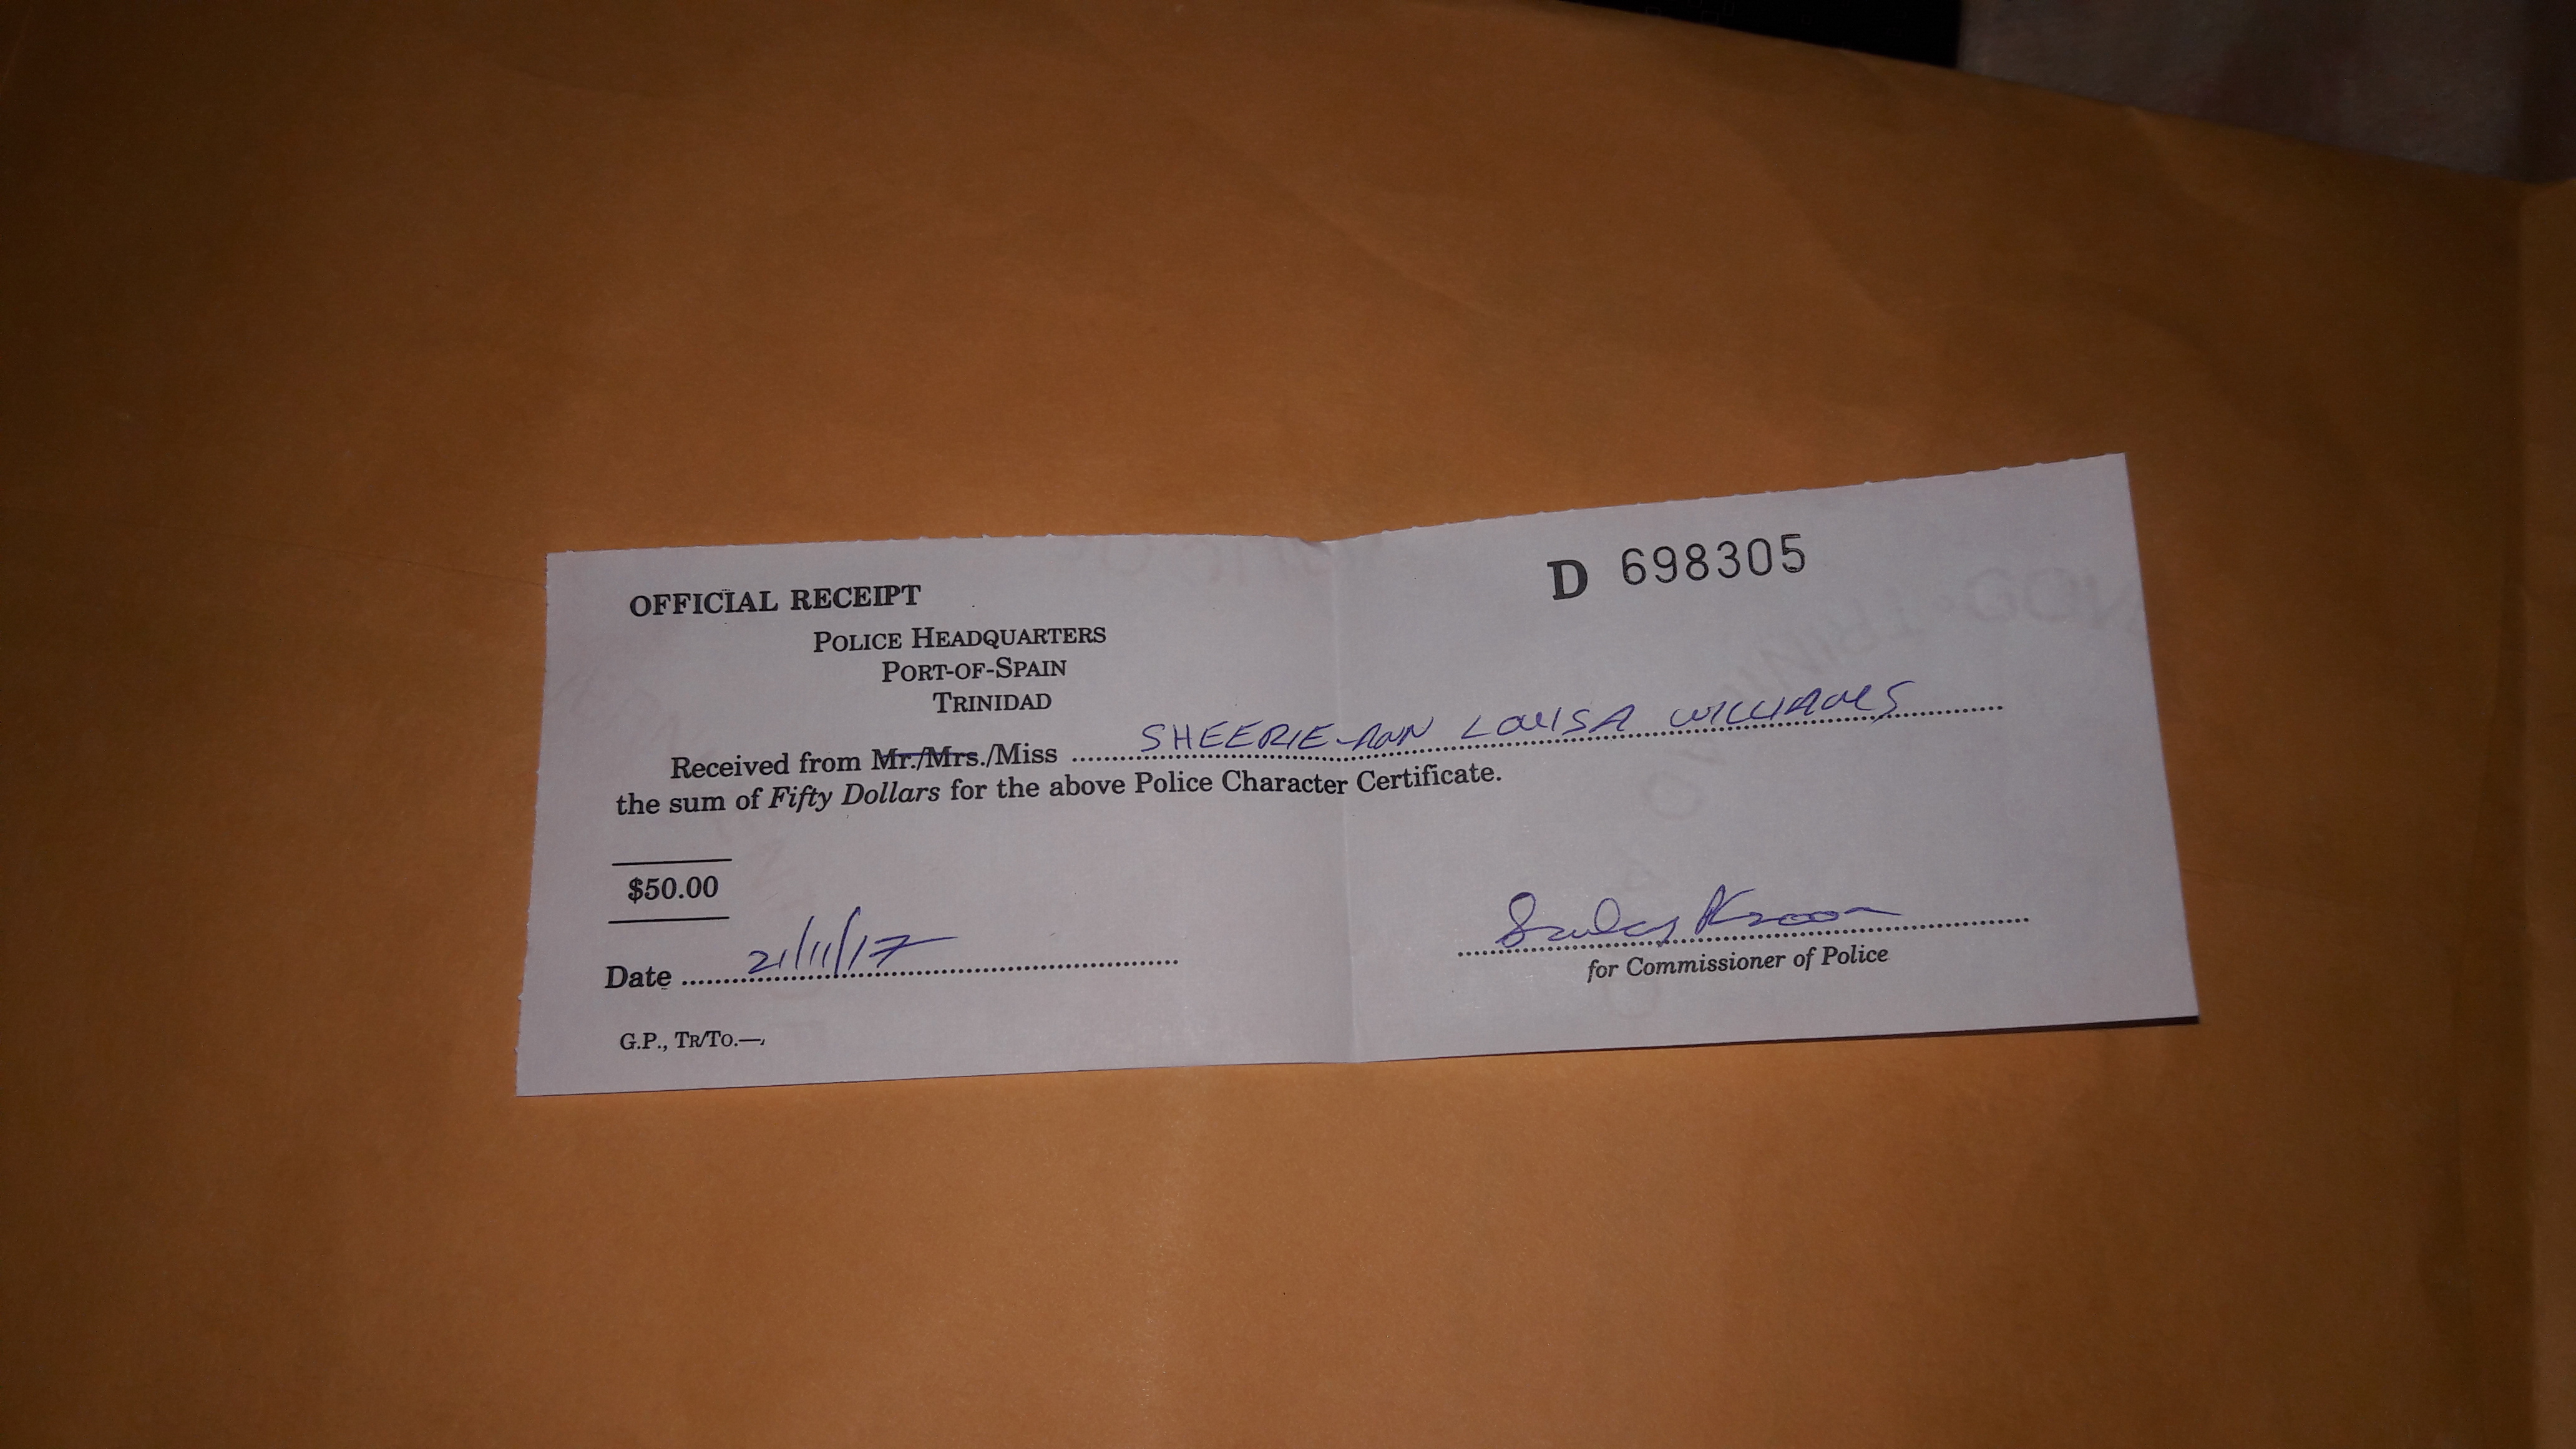 OFFICIAL RECEIPT
D 698305
POLICE HEADQUARTERS
PORT-OF-SPAIN
TRINIDAD
Received from Mr./Mrs./Miss SHEERIE-ANN LOUISA WILLIAMS
the sum of Fifty Dollars for the above Police Character Certificate.
$50.00
Date 21/11/17
for Commissioner of Police
G.P., TR/TO.—,